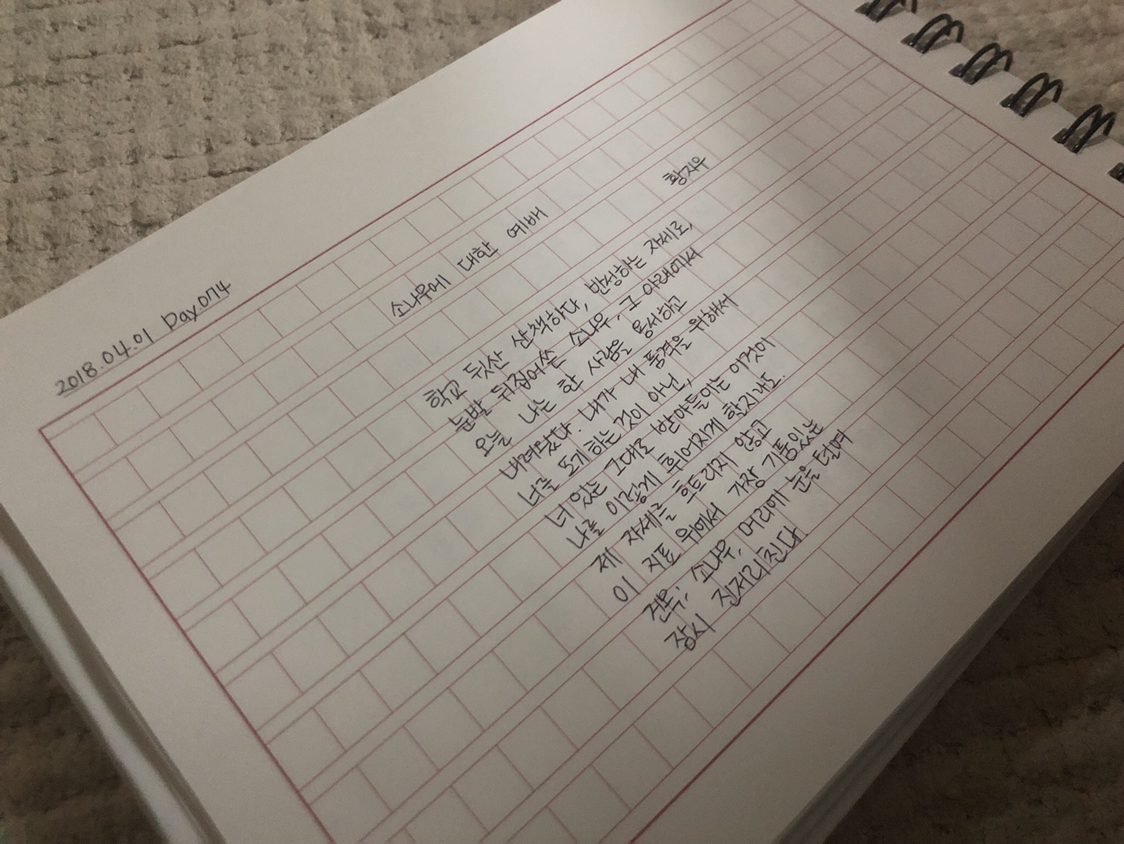 2018.04.01 Day.074
소나무에 대한 예배
황지우
학교 뒷산 산책하다, 반성하는 자세로,
눈발 뒤집어쓴 소나무, 그 아래에서
오늘 나는 한 사람을 용서하고
내려왔다. 내가 내 품격을 위해서
너를 포기하는 것이 아닌,
너 있는 그대로 받아들이는 이것이
나를 이렇게 휘어지게 할지라도.
제 자세를 흐트리지 않고
이 지표 위에서 가장 기품있는
건목; 소나무, 머리에 눈을 털며
잠시 진저리친다